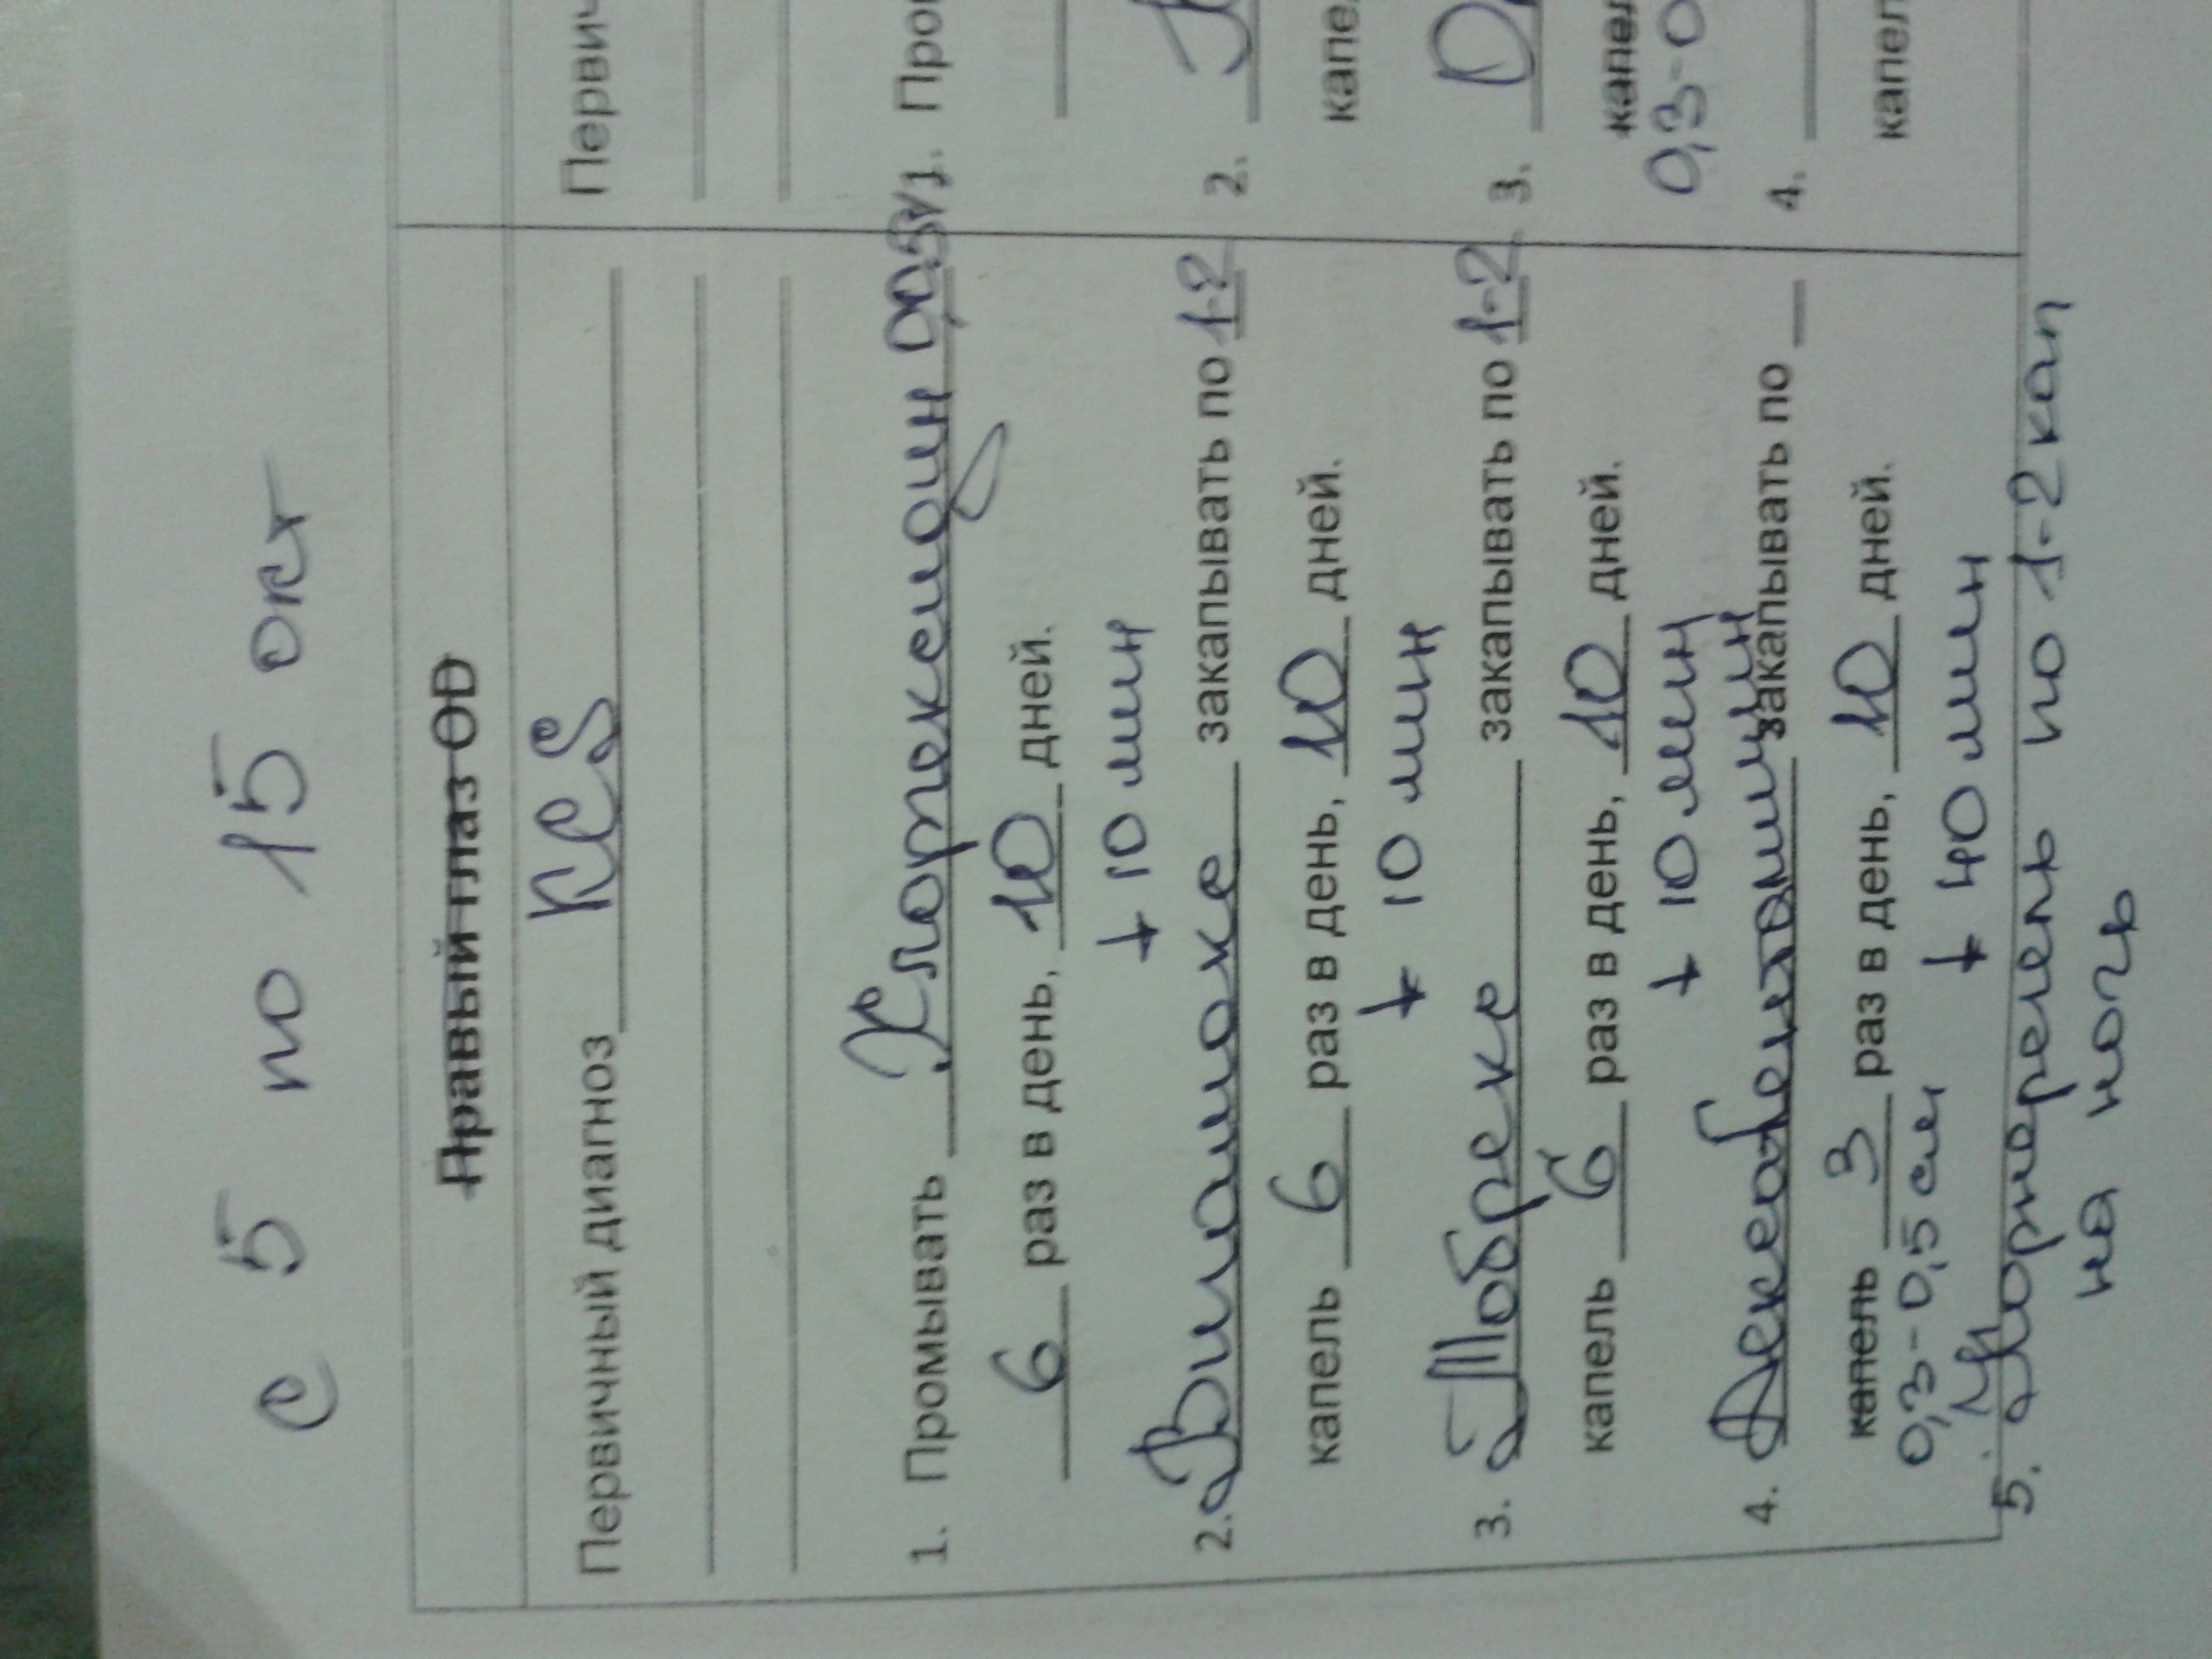 с 5 по 15 окт
Правый глаз OD
Первичный диагноз KCS
1. Промывать Хлоргексидин 0,05%
6 раз в день, 10 дней.
↓ 10 мин
2. Витапокс закапывать по 1-2
капель 6 раз в день, 10 дней.
↓ 10 мин
3. Тобрекс закапывать по 1-2
капель 6 раз в день, 10 дней.
↓ 10 мин
4. закапывать по
капель 3 раз в день, 10 дней.
0,3-0,5 см ↓ 40 мин
5. по 1-2 кап
на ночь
Первич
1. Про
2.
капе
3.
капел
0,3-0
4.
капел